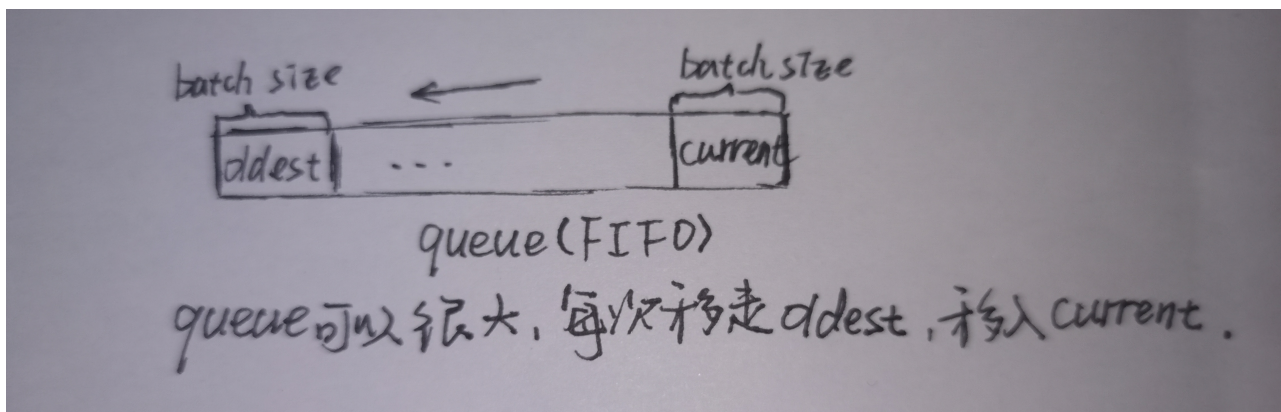 batch size
batch size
oldest
...
current
queue(FIFO)
queue可以很大,每次移走oldest,移入current.